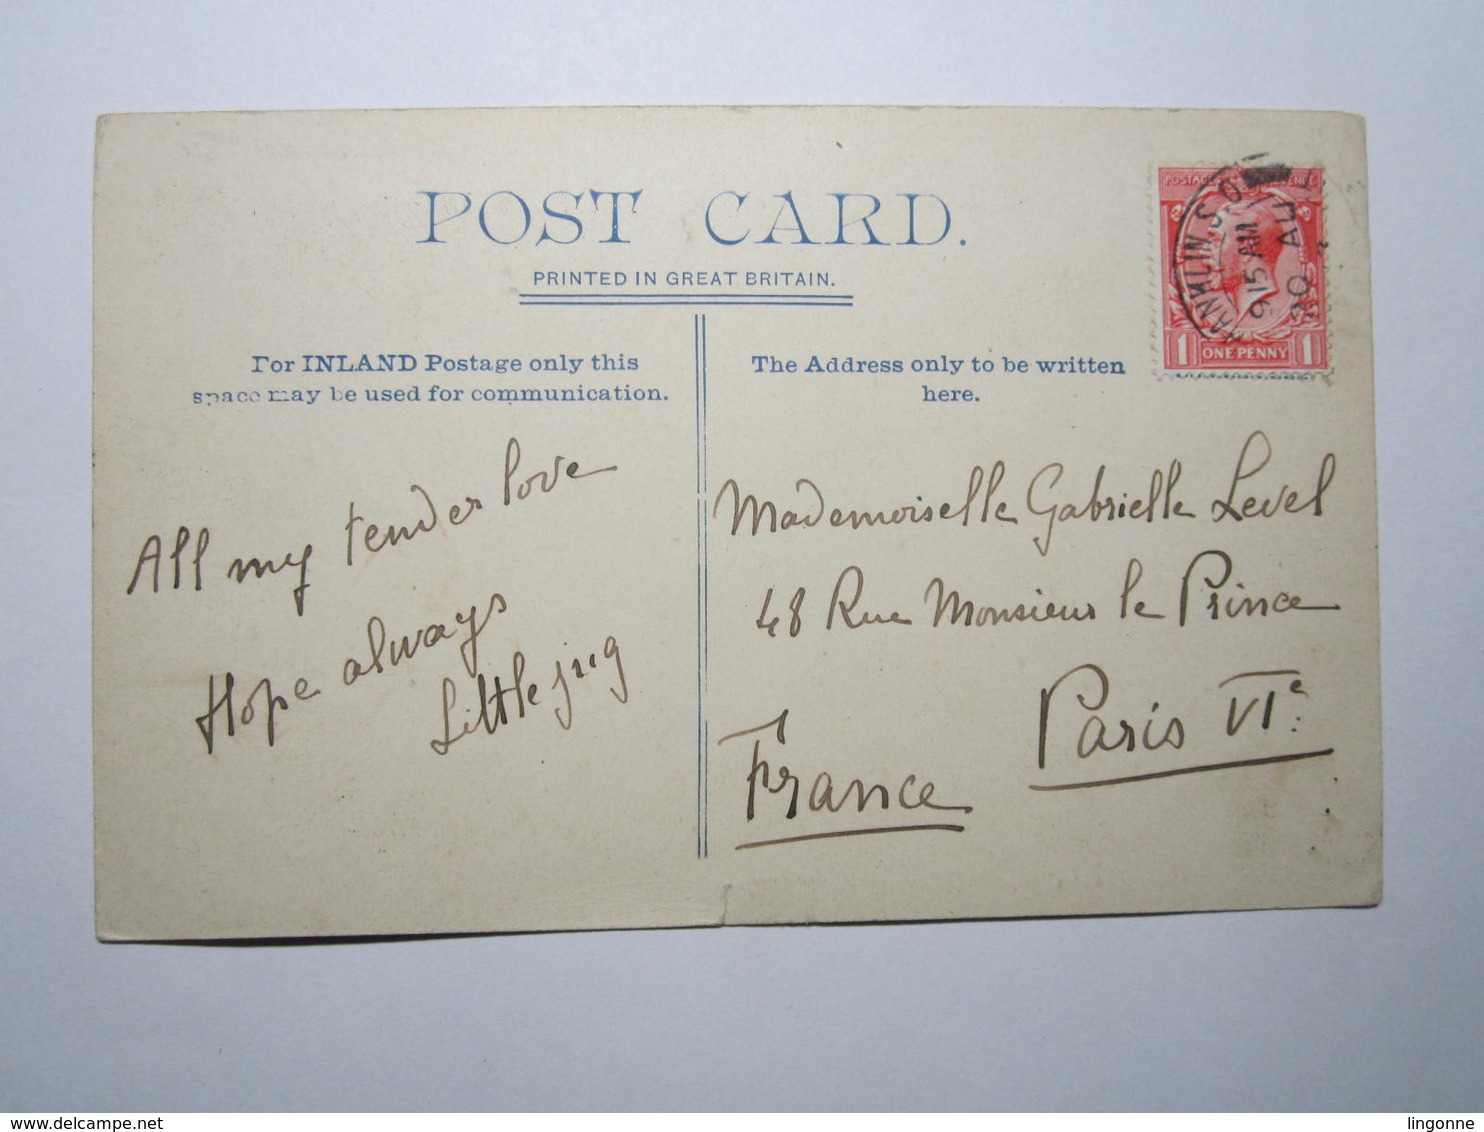 POST CARD.
PRINTED IN GREAT BRITAIN.
For INLAND Postage only this
space may be used for communication.
The Address only to be written
here.
ONE PENNY
1 1
9 15 AM
All my tender love
Hope always
Little jug
Mademoiselle Gabrielle Level
48 Rue Monsieur le Prince
Paris VIe
France
delcampe.net
lingonne